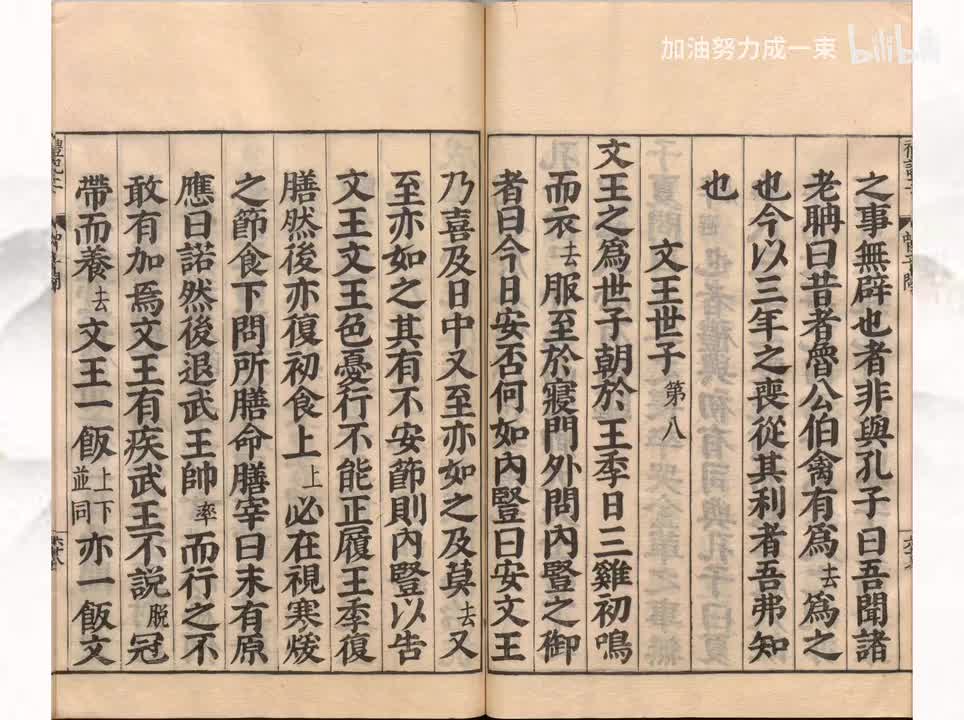 加油努力成一束 bilibili
之事無辟也者非與孔子曰吾聞諸
老聃曰昔者魯公伯禽有爲去爲之
也今以三年之喪從其利者吾弗知
也
文王世子第八
文王之爲世子朝於王季日三雞初鳴
而衣去服至於寢門外問內豎之御
者曰今日安否何如內豎曰安文王
乃喜及日中又至亦如之及莫去又
至亦如之其有不安節則內豎以告
文王文王色憂行不能正履王季復
膳然後亦復初食上上必在視寒煖
之節食下問所膳命膳宰曰末有原
應曰諾然後退武王帥率而行之不
敢有加焉文王有疾武王不說脫冠
帶而養去文王一飯上下並同亦一飯文